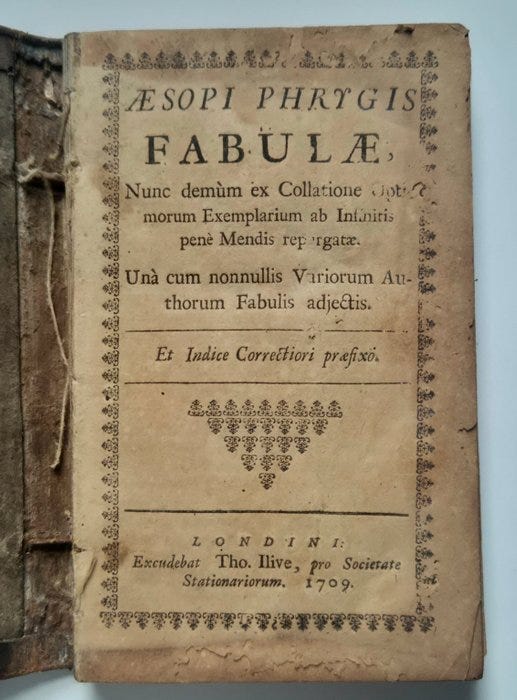 ÆSOPI PHRYGIS
FABULÆ,
Nunc demùm ex Collatione Opti-
morum Exemplarium ab Infinitis
penè Mendis repurgatæ.
Unà cum nonnullis Variorum Au-
thorum Fabulis adjectis.
Et Indice Correctiori præfixo.
LONDINI:
Excudebat Tho. Ilive, pro Societate
Stationariorum. 1709.